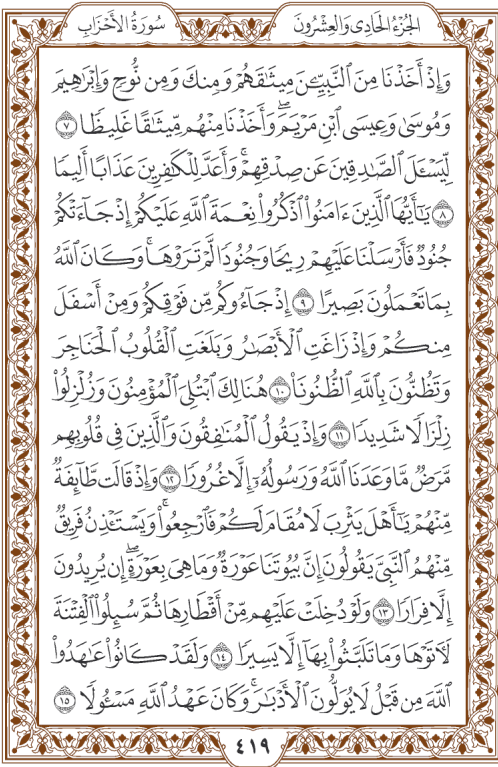 الجُزْءُ الحَادِى وَالعِشْرُونَ
سُورَةُ الأَحْزَابِ
وَإِذْ أَخَذْنَا مِنَ ٱلنَّبِيِّـۧنَ مِيثَٰقَهُمْ وَمِنكَ وَمِن نُّوحٍ وَإِبْرَٰهِيمَ
وَمُوسَىٰ وَعِيسَى ٱبْنِ مَرْيَمَۖ وَأَخَذْنَا مِنْهُم مِّيثَٰقًا غَلِيظًا ٧
لِّيَسْـَٔلَ ٱلصَّٰدِقِينَ عَن صِدْقِهِمْۚ وَأَعَدَّ لِلْكَٰفِرِينَ عَذَابًا أَلِيمًا
٨ يَٰٓأَيُّهَا ٱلَّذِينَ ءَامَنُوا۟ ٱذْكُرُوا۟ نِعْمَةَ ٱللَّهِ عَلَيْكُمْ إِذْ جَآءَتْكُمْ
جُنُودٌ فَأَرْسَلْنَا عَلَيْهِمْ رِيحًا وَجُنُودًا لَّمْ تَرَوْهَاۚ وَكَانَ ٱللَّهُ
بِمَا تَعْمَلُونَ بَصِيرًا ٩ إِذْ جَآءُوكُم مِّن فَوْقِكُمْ وَمِنْ أَسْفَلَ
مِنكُمْ وَإِذْ زَاغَتِ ٱلْأَبْصَٰرُ وَبَلَغَتِ ٱلْقُلُوبُ ٱلْحَنَاجِرَ
وَتَظُنُّونَ بِٱللَّهِ ٱلظُّنُونَا۠ ١٠ هُنَالِكَ ٱبْتُلِىَ ٱلْمُؤْمِنُونَ وَزُلْزِلُوا۟
زِلْزَالًا شَدِيدًا ١١ وَإِذْ يَقُولُ ٱلْمُنَٰفِقُونَ وَٱلَّذِينَ فِى قُلُوبِهِم
مَّرَضٌ مَّا وَعَدَنَا ٱللَّهُ وَرَسُولُهُۥٓ إِلَّا غُرُورًا ١٢ وَإِذْ قَالَت طَّآئِفَةٌ
مِّنْهُمْ يَٰٓأَهْلَ يَثْرِبَ لَا مُقَامَ لَكُمْ فَٱرْجِعُوا۟ۚ وَيَسْتَـْٔذِنُ فَرِيقٌ
مِّنْهُمُ ٱلنَّبِىَّ يَقُولُونَ إِنَّ بُيُوتَنَا عَوْرَةٌ وَمَا هِىَ بِعَوْرَةٍۖ إِن يُرِيدُونَ
إِلَّا فِرَارًا ١٣ وَلَوْ دُخِلَتْ عَلَيْهِم مِّنْ أَقْطَارِهَا ثُمَّ سُئِلُوا۟ ٱلْفِتْنَةَ
لَـَٔاتَوْهَا وَمَا تَلَبَّثُوا۟ بِهَآ إِلَّا يَسِيرًا ١٤ وَلَقَدْ كَانُوا۟ عَٰهَدُوا۟
ٱللَّهَ مِن قَبْلُ لَا يُوَلُّونَ ٱلْأَدْبَٰرَۚ وَكَانَ عَهْدُ ٱللَّهِ مَسْـُٔولًا ١٥
٤١٩